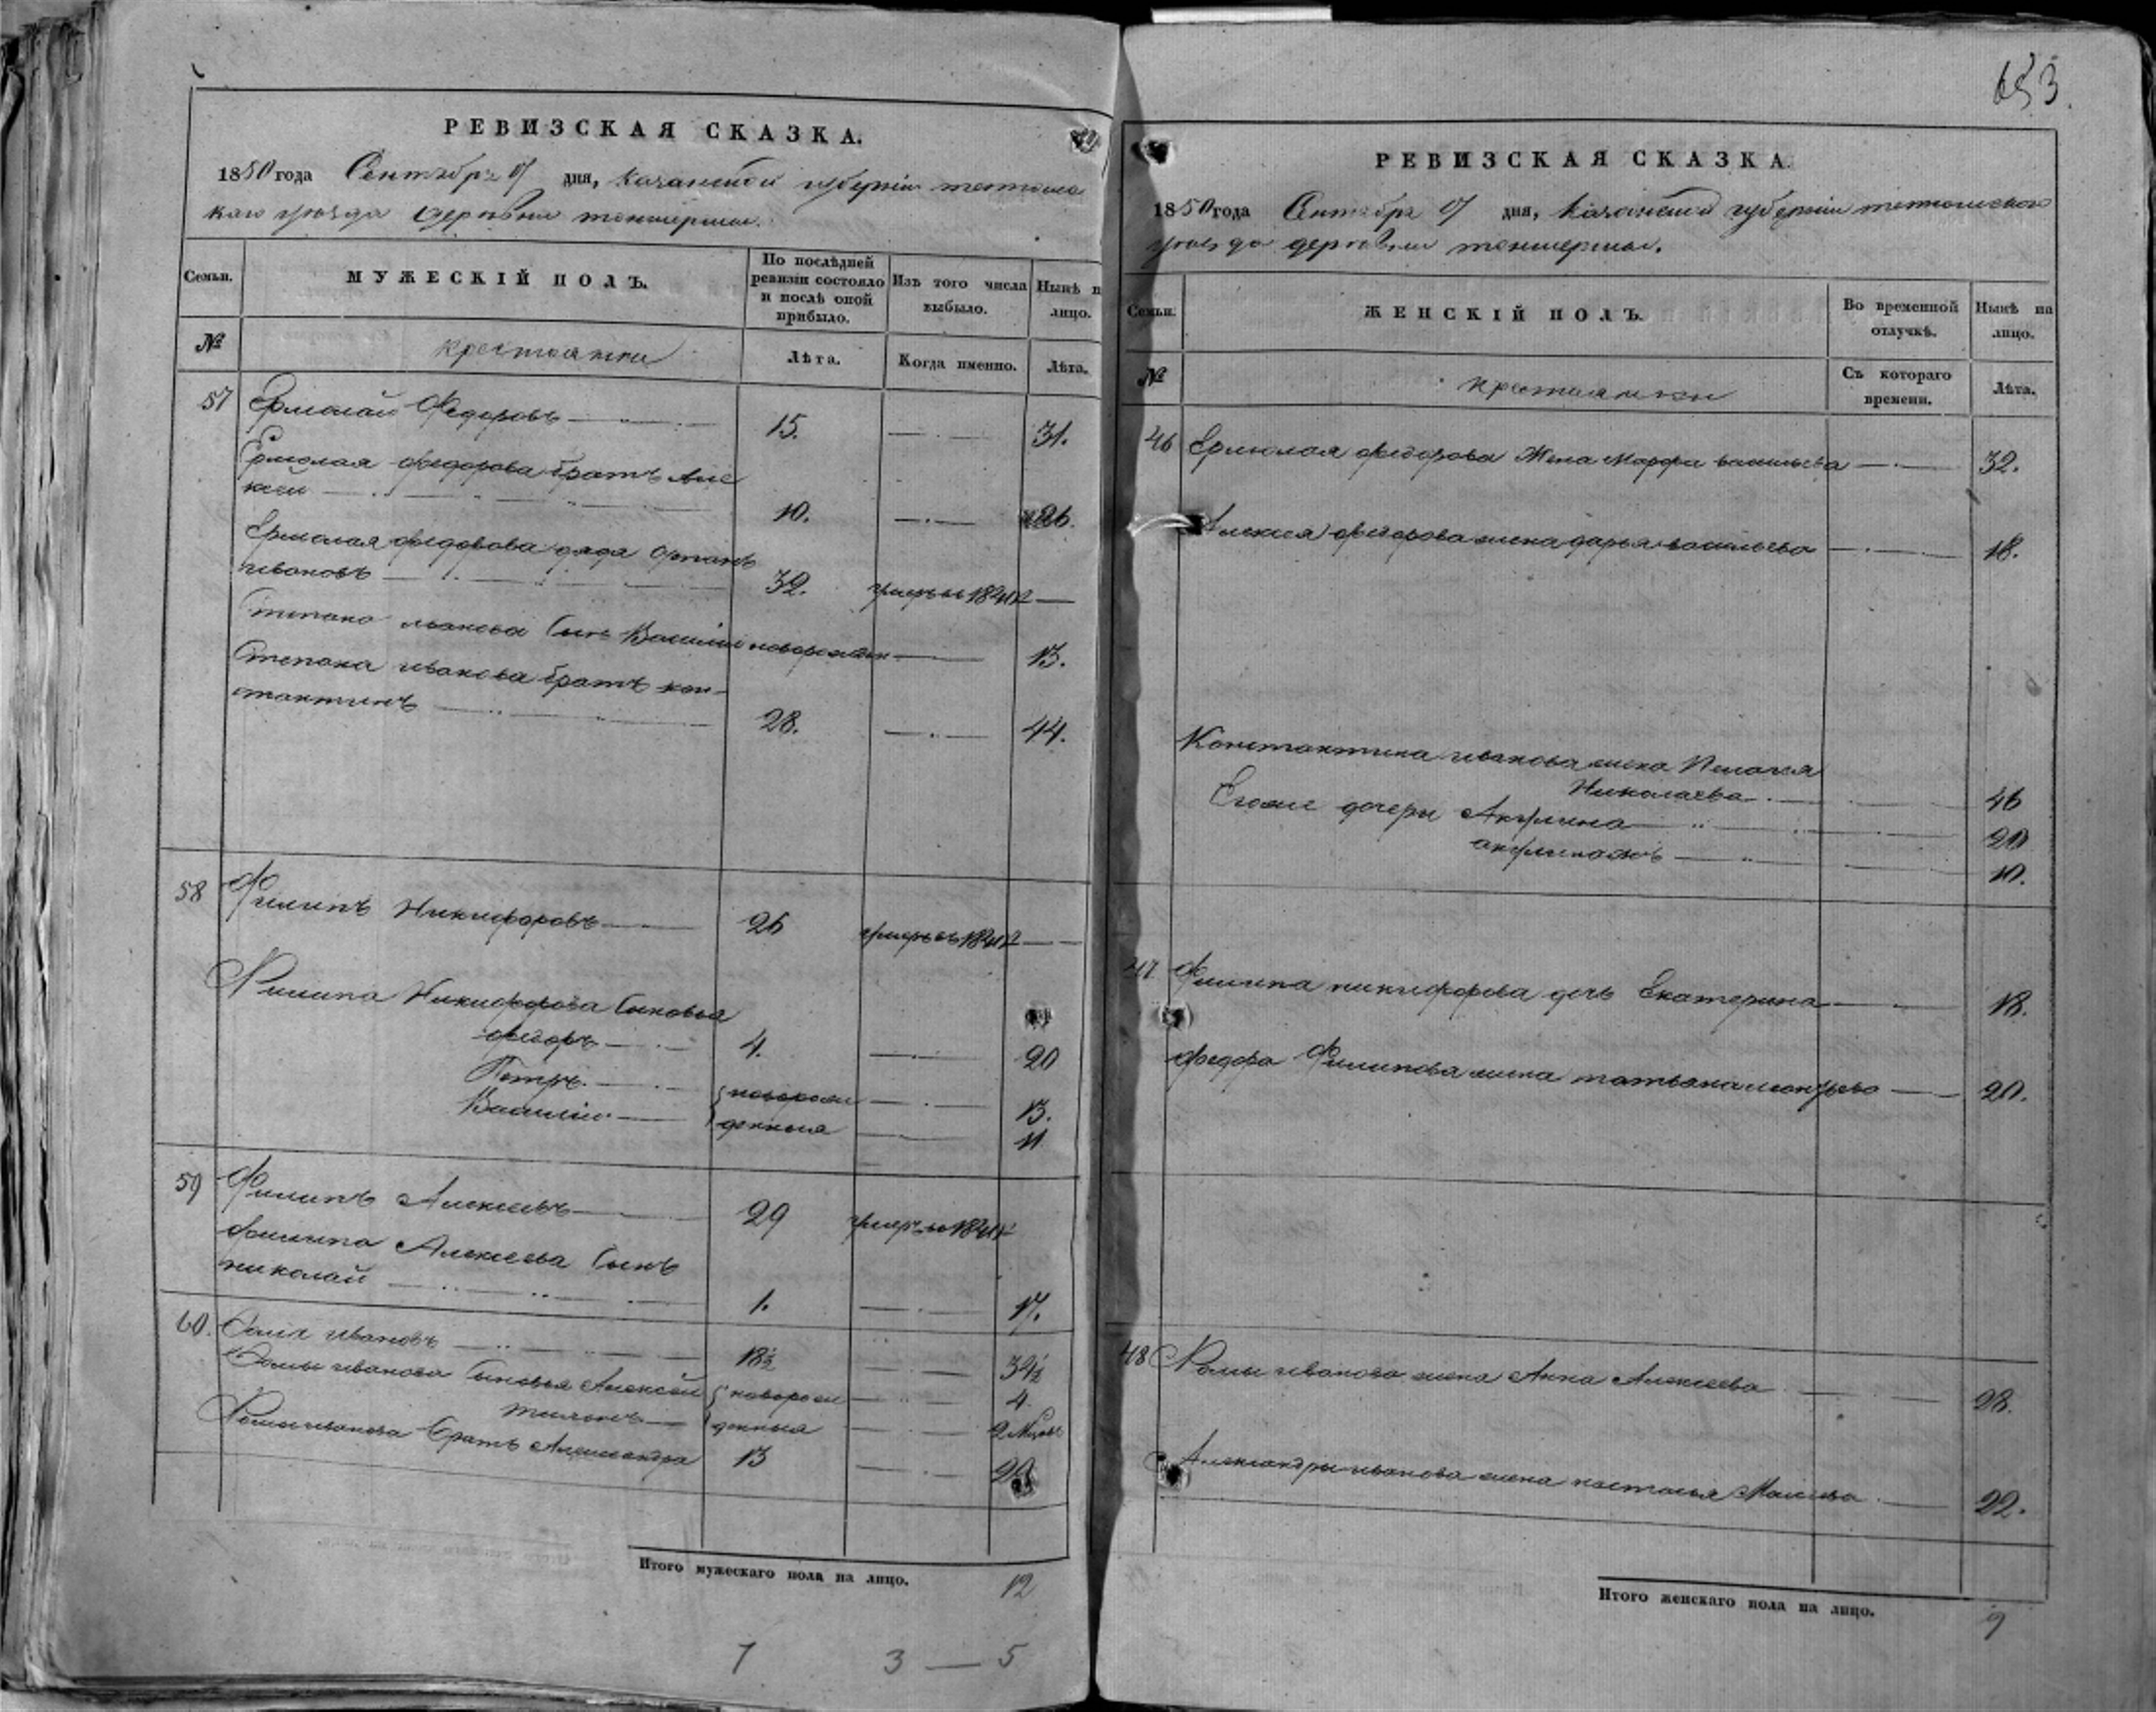 653.
РЕВИЗСКАЯ СКАЗКА.
1850 года Сентября 9 дня, Казанской губернии тетюшс
каго уезда Деревни
Семьи. МУЖЕСКІЙ ПОЛЪ. По послѣдней ревизіи состояло и послѣ оной прибыло. Изъ того числа выбыло. Нынѣ н лицо.
№ крестьяне Лѣта. Когда именно. Лѣта.
57 Ермолай Федоровъ 15. 31.
Ермолая федорова братъ Але
ксей 10. 26.
Ермолая федорова дядя
ивановъ 32. умеръ въ
Степана иванова Сынъ Василий новорожден 13.
Степана иванова братъ кон-
стантинъ 28. 44.
58 Филипъ Никифоровъ 26 умеръ въ
Филипа Никифорова Сыновья
федоръ 4. 20
Петръ новорож 13.
Василій денныя 11
59 Филипъ Алексеевъ 29 умеръ въ
Филипа Алексеева Сынъ
николай 1. 17.
60. Фома ивановъ 18½ 34½
Фомы иванова Сыновья Алексей новорож 4
денныя 2
Фомы иванова братъ Александра 13 29
Итого мужескаго пола на лицо. 12
7 3 — 5
РЕВИЗСКАЯ СКАЗКА.
1850 года Сентября 9 дня, Казанской губернии тетюшскаго
уезда деревни
Семьи. ЖЕНСКІЙ ПОЛЪ. Во временной отлучкѣ. Нынѣ на лицо.
№ крестьянки Съ котораго времени. Лѣта.
46 Ермолая федорова Жена Марфа васильева 32.
Алексея федорова жена дарья васильева 18.
Константина иванова жена Пелагея
Николаева 46
Егоже дочери Акулина 20
10.
47 Филипа никифорова дочь Екатерина 18.
федора Филипова жена татьяна 20.
48 Фомы иванова жена Анна Алексеева 28.
Александры иванова жена настасья 22.
Итого женскаго пола на лицо. 9